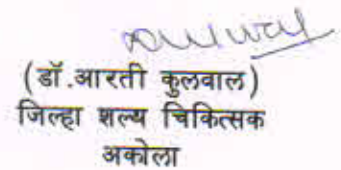 (डॉ.आरती कुलवाल)
जिल्हा शल्य चिकित्सक
अकोला